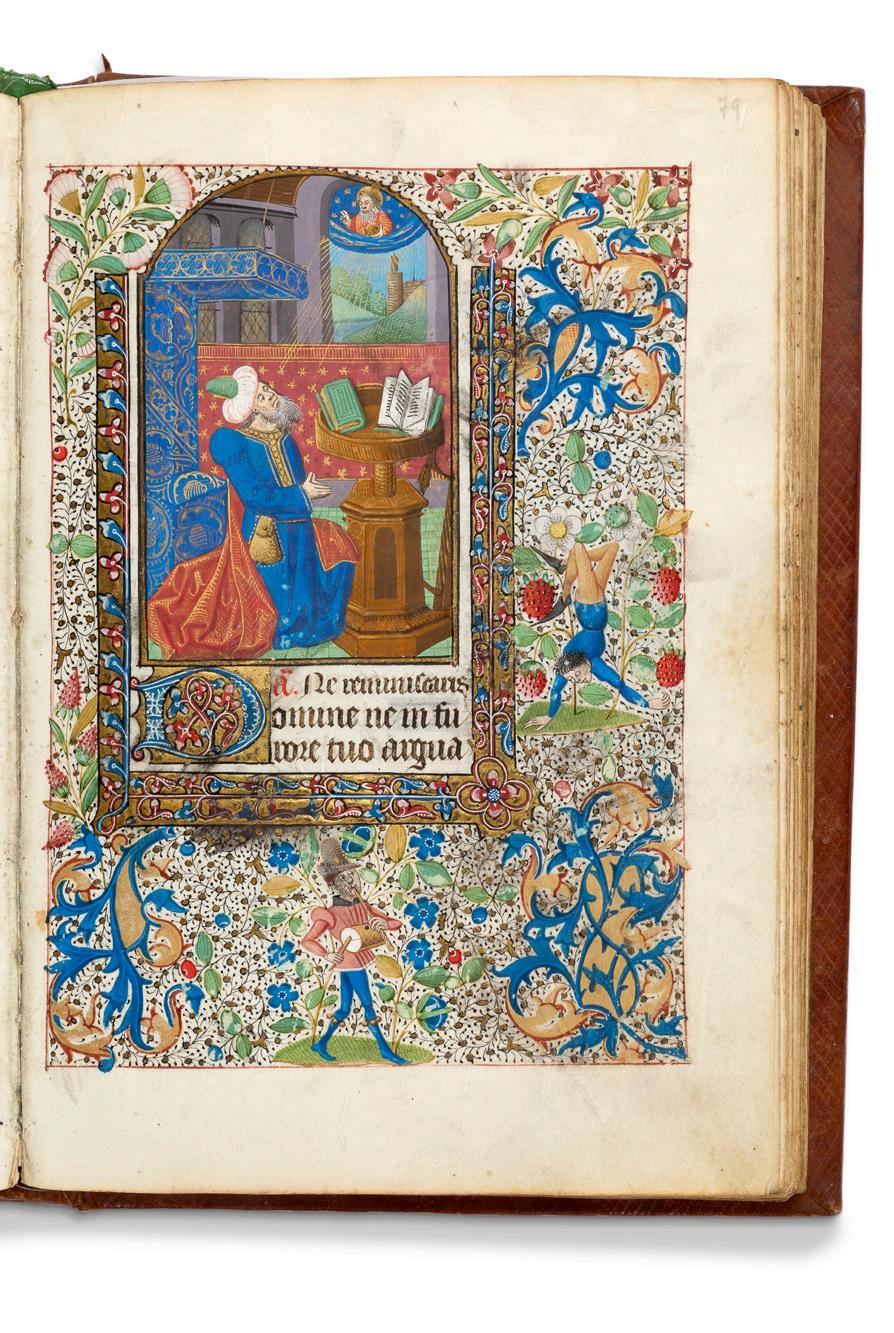 79
ã. Ne reminiscaris
Domine ne in fu
rore tuo argua